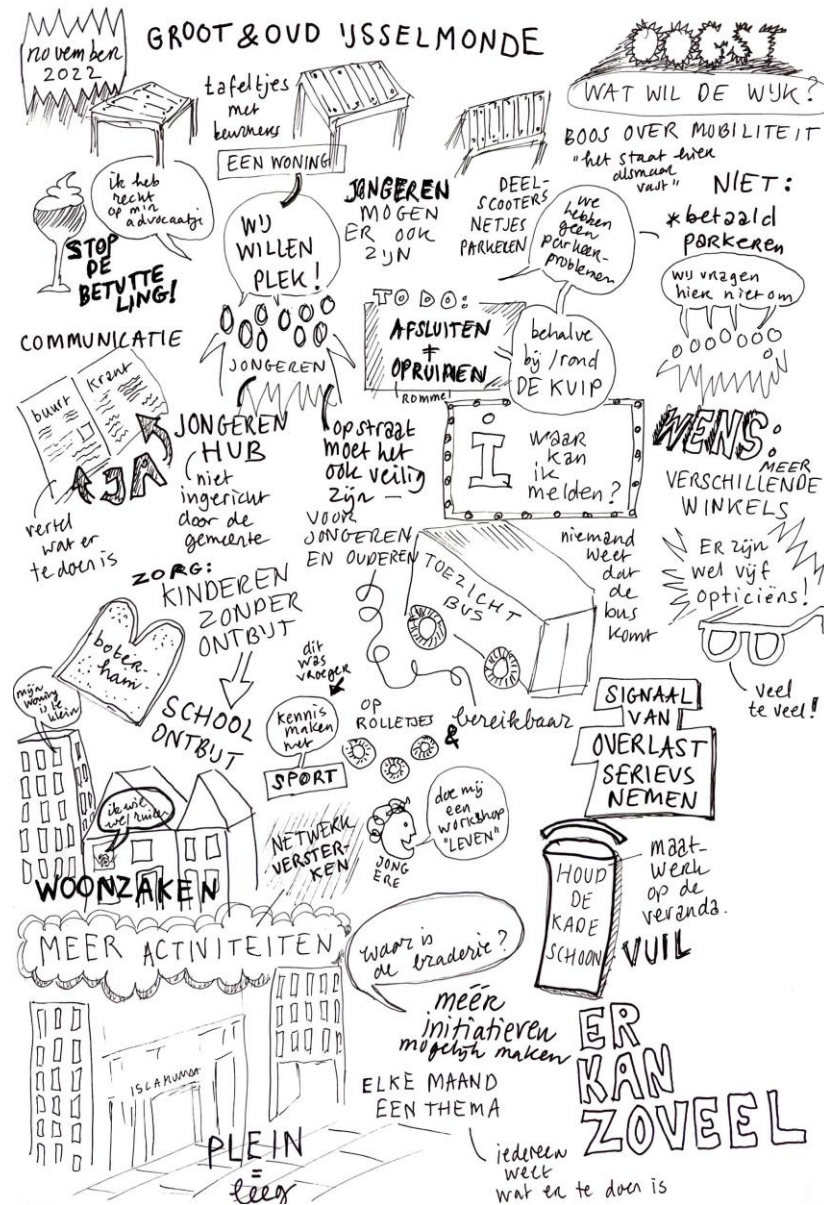 november
2022
GROOT & OUD IJSSELMONDE
OOGST
WAT WIL DE WIJK?
tafeltjes
met
bewoners
BOOS OVER MOBILITEIT
"het staat hier
alsmaar
vast"
EEN WONING
ik heb
recht
op m'n
advocaatje
STOP
DE
BETUTTE
LING!
WIJ
WILLEN
PLEK!
JONGEREN
JONGEREN
MOGEN
ER OOK
ZIJN
DEEL-
SCOOTERS
NETJES
PARKEREN
we
hebben
geen
parkeer-
problemen
NIET:
* betaald
parkeren
wij vragen
hier niet om
TO DO:
AFSLUITEN
+
OPRUIMEN
(rommel)
behalve
bij / rond
DE KUIP
COMMUNICATIE
buurt krant
JA
vertel
wat er
te doen is
JONGEREN
HUB
niet
ingericht
door de
gemeente
op straat
moet het
ook veilig
zijn —
VOOR
JONGEREN
EN OUDEREN
I
WAAR
KAN
ik
melden?
WENS:
MEER
VERSCHILLENDE
WINKELS
ER zijn
wel vijf
opticiëns!
veel
te veel!
TOEZICHT
BUS
niemand
weet
dat
de
bus
komt
ZORG:
KINDEREN
ZONDER
ONTBIJT
boter-
ham
SCHOOL
ONTBIJT
dit
was
vroeger
kennis
maken
met
SPORT
OP
ROLLETJES
& bereikbaar
SIGNAAL
VAN
OVERLAST
SERIEUS
NEMEN
mijn
woning
is te
klein
ik wil
wel ruilen
WOONZAKEN
NETWERK
VERSTER-
KEN
JONG
ERE
doe mij
een
workshop
"LEVEN"
HOUD
DE
KADE
SCHOON
maat-
werk
op de
veranda.
VUIL
MEER ACTIVITEITEN
waar is
de braderie?
méér
initiatieven
mogelijk maken
ELKE MAAND
EEN THEMA
iedereen
weet
wat er te doen is
ER
KAN
ZOVEEL
PLEIN
=
leeg